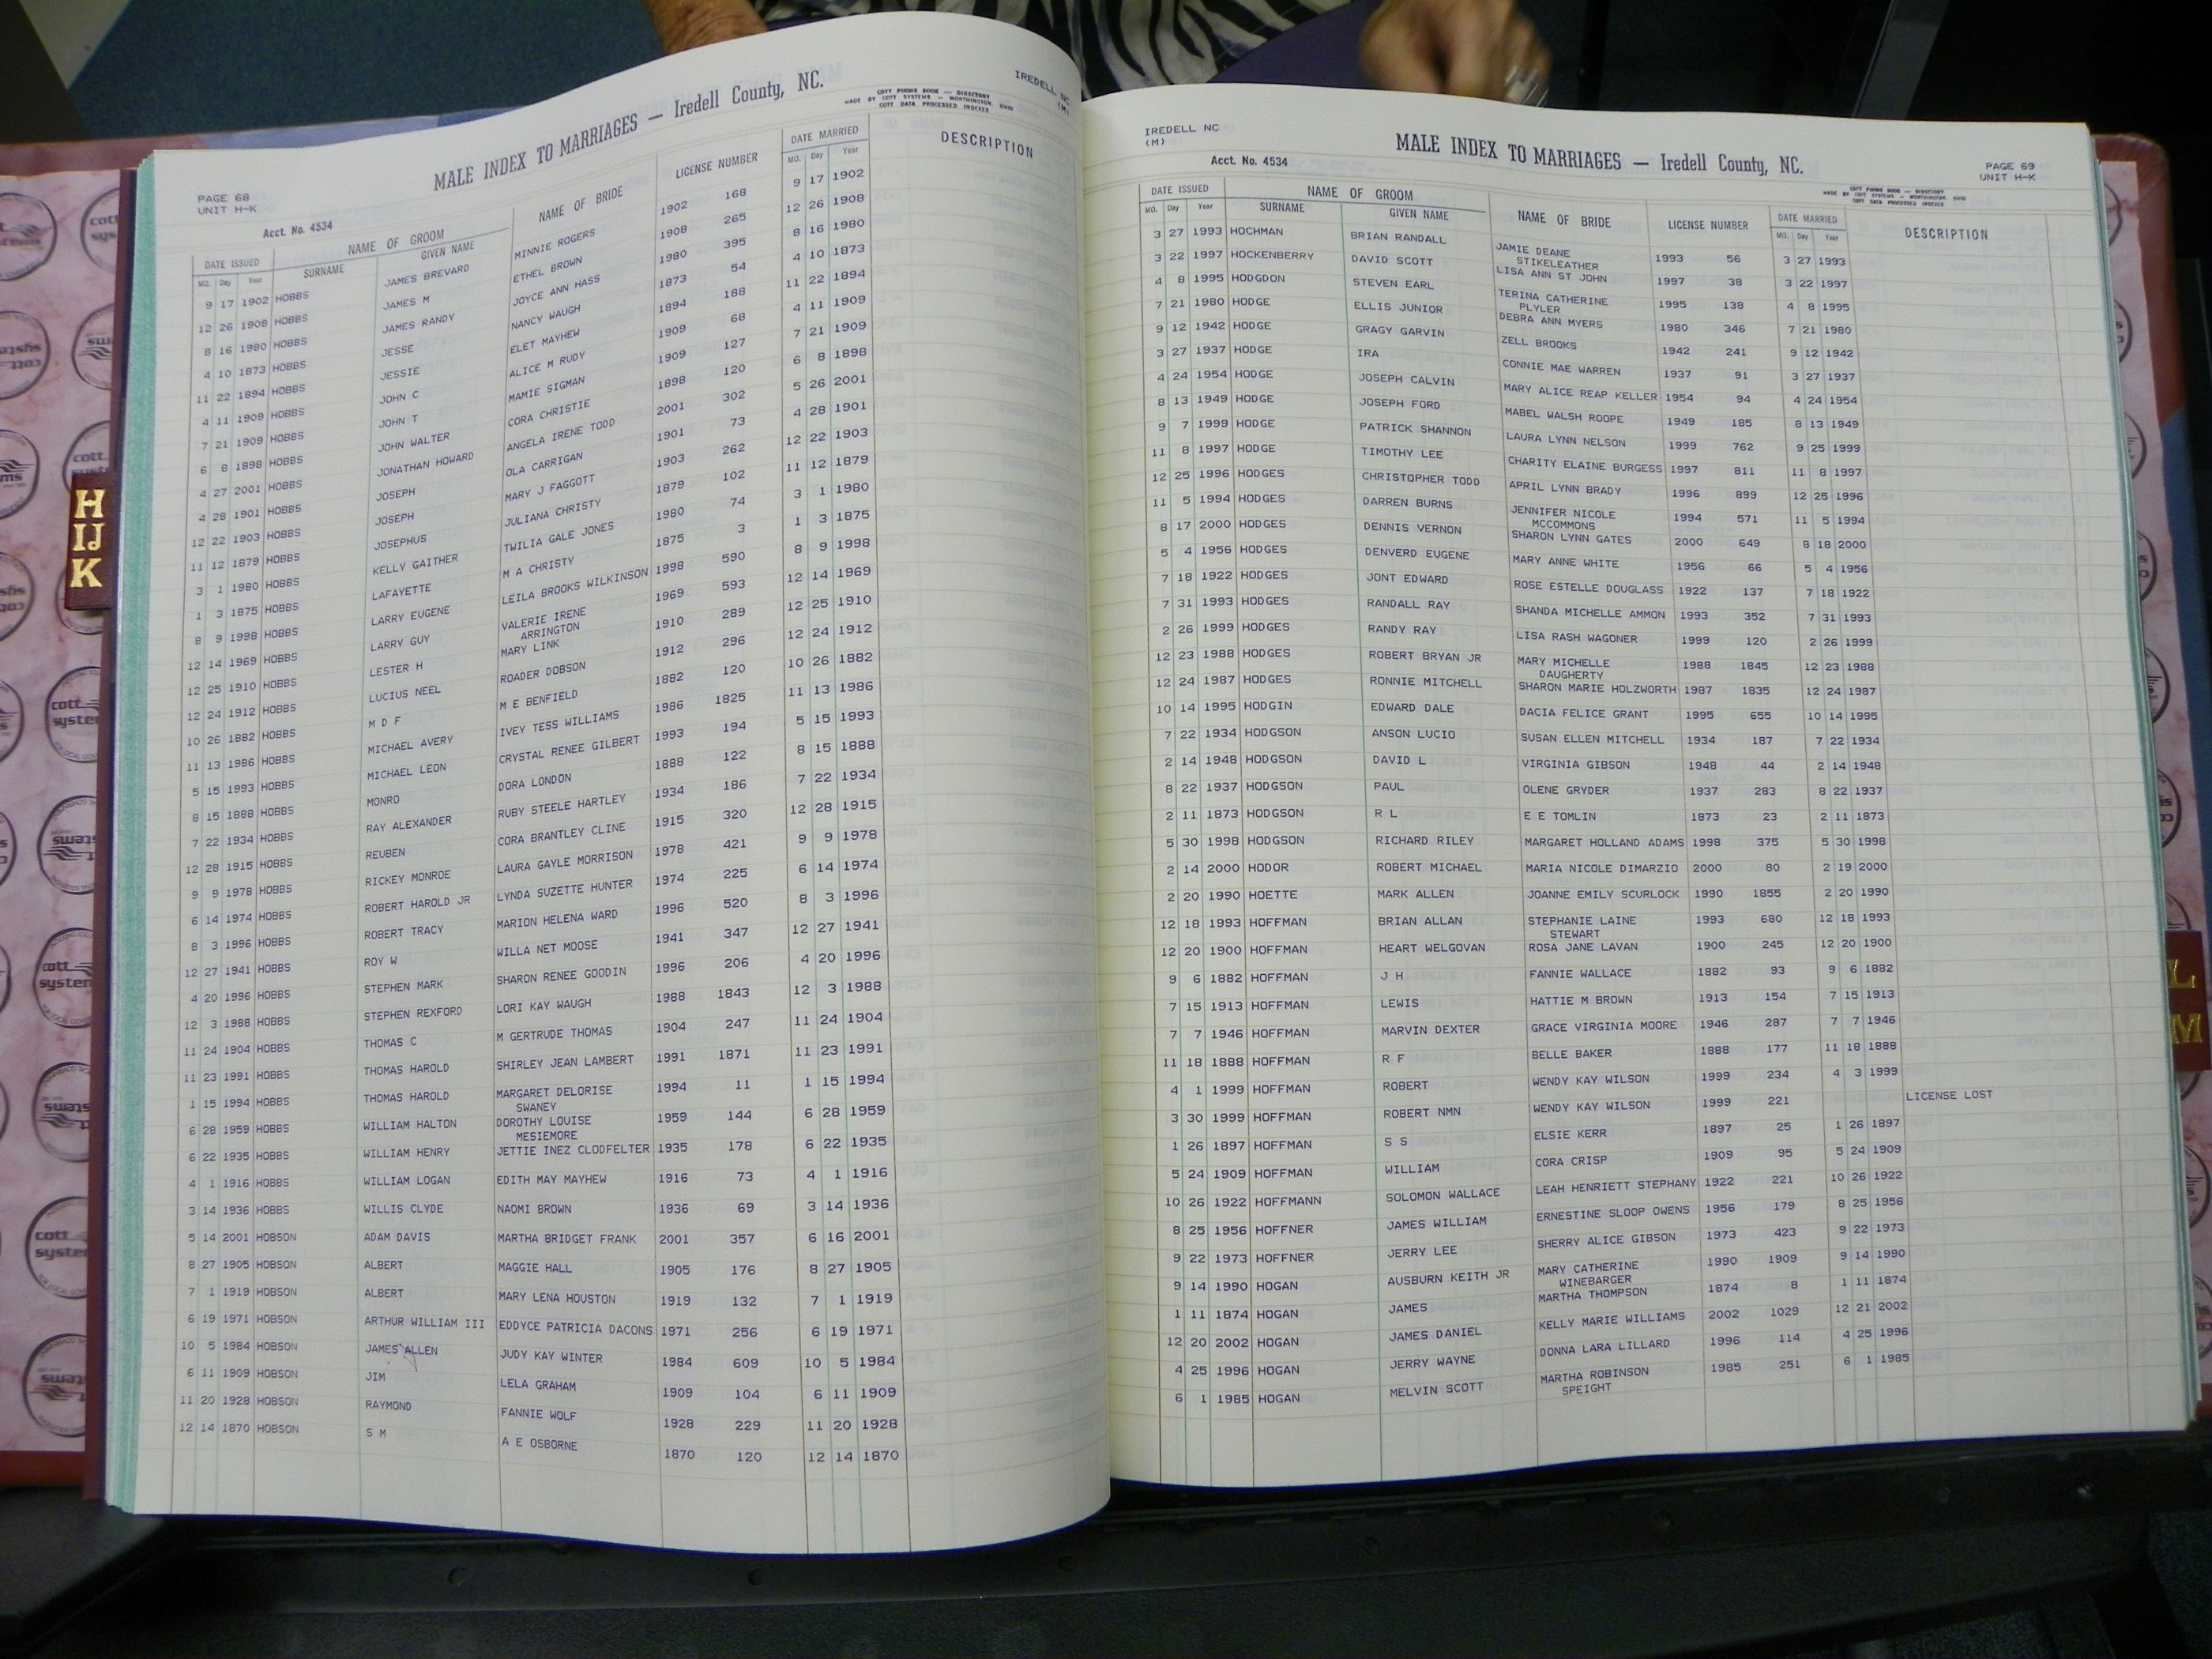 IREDELL NC
(M)
MALE INDEX TO MARRIAGES — Iredell County, NC.
COTT PHONE BOOK — DIRECTORY
MADE BY COTT SYSTEMS — WORTHINGTON, OHIO
COTT DATA PROCESSED INDEXES
PAGE 68
UNIT H-K
Acct. No. 4534
DATE ISSUED NAME OF GROOM NAME OF BRIDE LICENSE NUMBER DATE MARRIED DESCRIPTION
MO. Day Year SURNAME GIVEN NAME MO. Day Year
9 17 1902 HOBBS JAMES BREVARD MINNIE ROGERS 1902 168 9 17 1902
12 26 1908 HOBBS JAMES M ETHEL BROWN 1908 265 12 26 1908
8 16 1980 HOBBS JAMES RANDY JOYCE ANN HASS 1980 395 8 16 1980
4 10 1873 HOBBS JESSE NANCY WAUGH 1873 54 4 10 1873
11 22 1894 HOBBS JESSIE ELET MAYHEW 1894 188 11 22 1894
4 11 1909 HOBBS JOHN C ALICE M RUDY 1909 68 4 11 1909
7 21 1909 HOBBS JOHN T MAMIE SIGMAN 1909 127 7 21 1909
6 8 1898 HOBBS JOHN WALTER CORA CHRISTIE 1898 120 6 8 1898
4 27 2001 HOBBS JONATHAN HOWARD ANGELA IRENE TODD 2001 302 5 26 2001
4 28 1901 HOBBS JOSEPH OLA CARRIGAN 1901 73 4 28 1901
12 22 1903 HOBBS JOSEPH MARY J FAGGOTT 1903 262 12 22 1903
11 12 1879 HOBBS JOSEPHUS JULIANA CHRISTY 1879 102 11 12 1879
3 1 1980 HOBBS KELLY GAITHER TWILIA GALE JONES 1980 74 3 1 1980
1 3 1875 HOBBS LAFAYETTE M A CHRISTY 1875 3 1 3 1875
8 9 1998 HOBBS LARRY EUGENE LEILA BROOKS WILKINSON 1998 590 8 9 1998
12 14 1969 HOBBS LARRY GUY VALERIE IRENE 1969 593 12 14 1969
ARRINGTON
12 25 1910 HOBBS LESTER H MARY LINK 1910 289 12 25 1910
12 24 1912 HOBBS LUCIUS NEEL ROADER DOBSON 1912 296 12 24 1912
10 26 1882 HOBBS M D F M E BENFIELD 1882 120 10 26 1882
11 13 1986 HOBBS MICHAEL AVERY IVEY TESS WILLIAMS 1986 1825 11 13 1986
5 15 1993 HOBBS MICHAEL LEON CRYSTAL RENEE GILBERT 1993 194 5 15 1993
8 15 1888 HOBBS MONRO DORA LONDON 1888 122 8 15 1888
7 22 1934 HOBBS RAY ALEXANDER RUBY STEELE HARTLEY 1934 186 7 22 1934
12 28 1915 HOBBS REUBEN CORA BRANTLEY CLINE 1915 320 12 28 1915
9 9 1978 HOBBS RICKEY MONROE LAURA GAYLE MORRISON 1978 421 9 9 1978
6 14 1974 HOBBS ROBERT HAROLD JR LYNDA SUZETTE HUNTER 1974 225 6 14 1974
8 3 1996 HOBBS ROBERT TRACY MARION HELENA WARD 1996 520 8 3 1996
12 27 1941 HOBBS ROY W WILLA NET MOOSE 1941 347 12 27 1941
4 20 1996 HOBBS STEPHEN MARK SHARON RENEE GOODIN 1996 206 4 20 1996
12 3 1988 HOBBS STEPHEN REXFORD LORI KAY WAUGH 1988 1843 12 3 1988
11 24 1904 HOBBS THOMAS C M GERTRUDE THOMAS 1904 247 11 24 1904
11 23 1991 HOBBS THOMAS HAROLD SHIRLEY JEAN LAMBERT 1991 1871 11 23 1991
1 15 1994 HOBBS THOMAS HAROLD MARGARET DELORISE 1994 11 1 15 1994
SWANEY
6 28 1959 HOBBS WILLIAM HALTON DOROTHY LOUISE 1959 144 6 28 1959
MESIEMORE
6 22 1935 HOBBS WILLIAM HENRY JETTIE INEZ CLODFELTER 1935 178 6 22 1935
4 1 1916 HOBBS WILLIAM LOGAN EDITH MAY MAYHEW 1916 73 4 1 1916
3 14 1936 HOBBS WILLIS CLYDE NAOMI BROWN 1936 69 3 14 1936
5 14 2001 HOBSON ADAM DAVIS MARTHA BRIDGET FRANK 2001 357 6 16 2001
8 27 1905 HOBSON ALBERT MAGGIE HALL 1905 176 8 27 1905
7 1 1919 HOBSON ALBERT MARY LENA HOUSTON 1919 132 7 1 1919
6 19 1971 HOBSON ARTHUR WILLIAM III EDDYCE PATRICIA DACONS 1971 256 6 19 1971
10 5 1984 HOBSON JAMES ALLEN JUDY KAY WINTER 1984 609 10 5 1984
6 11 1909 HOBSON JIM LELA GRAHAM 1909 104 6 11 1909
11 20 1928 HOBSON RAYMOND FANNIE WOLF 1928 229 11 20 1928
12 14 1870 HOBSON S M A E OSBORNE 1870 120 12 14 1870
H
IJ
K
IREDELL NC
(M)
Acct. No. 4534
MALE INDEX TO MARRIAGES — Iredell County, NC.
PAGE 69
UNIT H-K
COTT PHONE BOOK — DIRECTORY
MADE BY COTT SYSTEMS — WORTHINGTON, OHIO
COTT DATA PROCESSED INDEXES
DATE ISSUED NAME OF GROOM NAME OF BRIDE LICENSE NUMBER DATE MARRIED DESCRIPTION
MO. Day Year SURNAME GIVEN NAME MO. Day Year
3 27 1993 HOCHMAN BRIAN RANDALL JAMIE DEANE 1993 56 3 27 1993
STIKELEATHER
3 22 1997 HOCKENBERRY DAVID SCOTT LISA ANN ST JOHN 1997 38 3 22 1997
4 8 1995 HODGDON STEVEN EARL TERINA CATHERINE 1995 138 4 8 1995
PLYLER
7 21 1980 HODGE ELLIS JUNIOR DEBRA ANN MYERS 1980 346 7 21 1980
9 12 1942 HODGE GRAGY GARVIN ZELL BROOKS 1942 241 9 12 1942
3 27 1937 HODGE IRA CONNIE MAE WARREN 1937 91 3 27 1937
4 24 1954 HODGE JOSEPH CALVIN MARY ALICE REAP KELLER 1954 94 4 24 1954
8 13 1949 HODGE JOSEPH FORD MABEL WALSH ROOPE 1949 185 8 13 1949
9 7 1999 HODGE PATRICK SHANNON LAURA LYNN NELSON 1999 762 9 25 1999
11 8 1997 HODGE TIMOTHY LEE CHARITY ELAINE BURGESS 1997 811 11 8 1997
12 25 1996 HODGES CHRISTOPHER TODD APRIL LYNN BRADY 1996 899 12 25 1996
11 5 1994 HODGES DARREN BURNS JENNIFER NICOLE 1994 571 11 5 1994
MCCOMMONS
8 17 2000 HODGES DENNIS VERNON SHARON LYNN GATES 2000 649 8 18 2000
5 4 1956 HODGES DENVERD EUGENE MARY ANNE WHITE 1956 66 5 4 1956
7 18 1922 HODGES JONT EDWARD ROSE ESTELLE DOUGLASS 1922 137 7 18 1922
7 31 1993 HODGES RANDALL RAY SHANDA MICHELLE AMMON 1993 352 7 31 1993
2 26 1999 HODGES RANDY RAY LISA RASH WAGONER 1999 120 2 26 1999
12 23 1988 HODGES ROBERT BRYAN JR MARY MICHELLE 1988 1845 12 23 1988
DAUGHERTY
12 24 1987 HODGES RONNIE MITCHELL SHARON MARIE HOLZWORTH 1987 1835 12 24 1987
10 14 1995 HODGIN EDWARD DALE DACIA FELICE GRANT 1995 655 10 14 1995
7 22 1934 HODGSON ANSON LUCIO SUSAN ELLEN MITCHELL 1934 187 7 22 1934
2 14 1948 HODGSON DAVID L VIRGINIA GIBSON 1948 44 2 14 1948
8 22 1937 HODGSON PAUL OLENE GRYDER 1937 283 8 22 1937
2 11 1873 HODGSON R L E E TOMLIN 1873 23 2 11 1873
5 30 1998 HODGSON RICHARD RILEY MARGARET HOLLAND ADAMS 1998 375 5 30 1998
2 14 2000 HODOR ROBERT MICHAEL MARIA NICOLE DIMARZIO 2000 80 2 19 2000
2 20 1990 HOETTE MARK ALLEN JOANNE EMILY SCURLOCK 1990 1855 2 20 1990
12 18 1993 HOFFMAN BRIAN ALLAN STEPHANIE LAINE 1993 680 12 18 1993
STEWART
12 20 1900 HOFFMAN HEART WELGOVAN ROSA JANE LAVAN 1900 245 12 20 1900
9 6 1882 HOFFMAN J H FANNIE WALLACE 1882 93 9 6 1882
7 15 1913 HOFFMAN LEWIS HATTIE M BROWN 1913 154 7 15 1913
7 7 1946 HOFFMAN MARVIN DEXTER GRACE VIRGINIA MOORE 1946 287 7 7 1946
11 18 1888 HOFFMAN R F BELLE BAKER 1888 177 11 18 1888
4 1 1999 HOFFMAN ROBERT WENDY KAY WILSON 1999 234 4 3 1999
3 30 1999 HOFFMAN ROBERT NMN WENDY KAY WILSON 1999 221 LICENSE LOST
1 26 1897 HOFFMAN S S ELSIE KERR 1897 25 1 26 1897
5 24 1909 HOFFMAN WILLIAM CORA CRISP 1909 95 5 24 1909
10 26 1922 HOFFMANN SOLOMON WALLACE LEAH HENRIETT STEPHANY 1922 221 10 26 1922
8 25 1956 HOFFNER JAMES WILLIAM ERNESTINE SLOOP OWENS 1956 179 8 25 1956
9 22 1973 HOFFNER JERRY LEE SHERRY ALICE GIBSON 1973 423 9 22 1973
9 14 1990 HOGAN AUSBURN KEITH JR MARY CATHERINE 1990 1909 9 14 1990
WINEBARGER
1 11 1874 HOGAN JAMES MARTHA THOMPSON 1874 8 1 11 1874
12 20 2002 HOGAN JAMES DANIEL KELLY MARIE WILLIAMS 2002 1029 12 21 2002
4 25 1996 HOGAN JERRY WAYNE DONNA LARA LILLARD 1996 114 4 25 1996
6 1 1985 HOGAN MELVIN SCOTT MARTHA ROBINSON 1985 251 6 1 1985
SPEIGHT
L
M